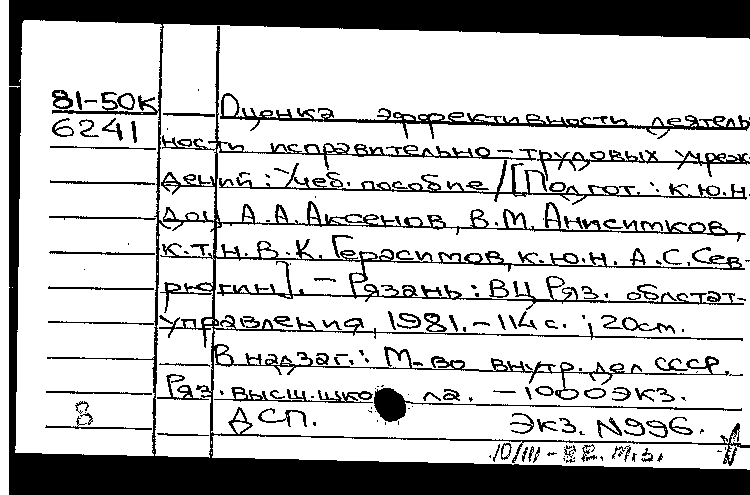 81-50к
6241
Оценка эффективность деятель
ности исправительно-трудовых учреж
дений: Учеб. пособие /[Подгот.: к.ю.н.
доц. А.А.Аксенов, В.М.Анисимков,
к.т.н. В.К. Герасимов, к.ю.н. А.С.Сев-
рюгин]. - Рязань: ВЦ Ряз. облстат-
управления, 1981.-114с. ; 20см.
В надзаг.: М-во внутр. дел СССР.
Ряз. высш. шко ла. - 1000экз.
8 ДСП. Экз. N996.
10/III-82.